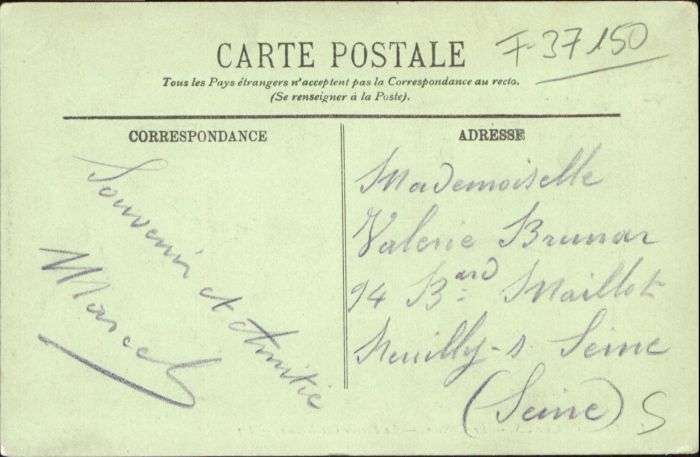 F-37150
CARTE POSTALE
Tous les Pays étrangers n'acceptent pas la Correspondance au recto.
(Se renseigner à la Poste).
CORRESPONDANCE
Souvenir et Amitié
Marcel
ADRESSE
Mademoiselle
Valerie Brunar
94 Bard Maillot
Neuilly-s Seine
(Seine) S